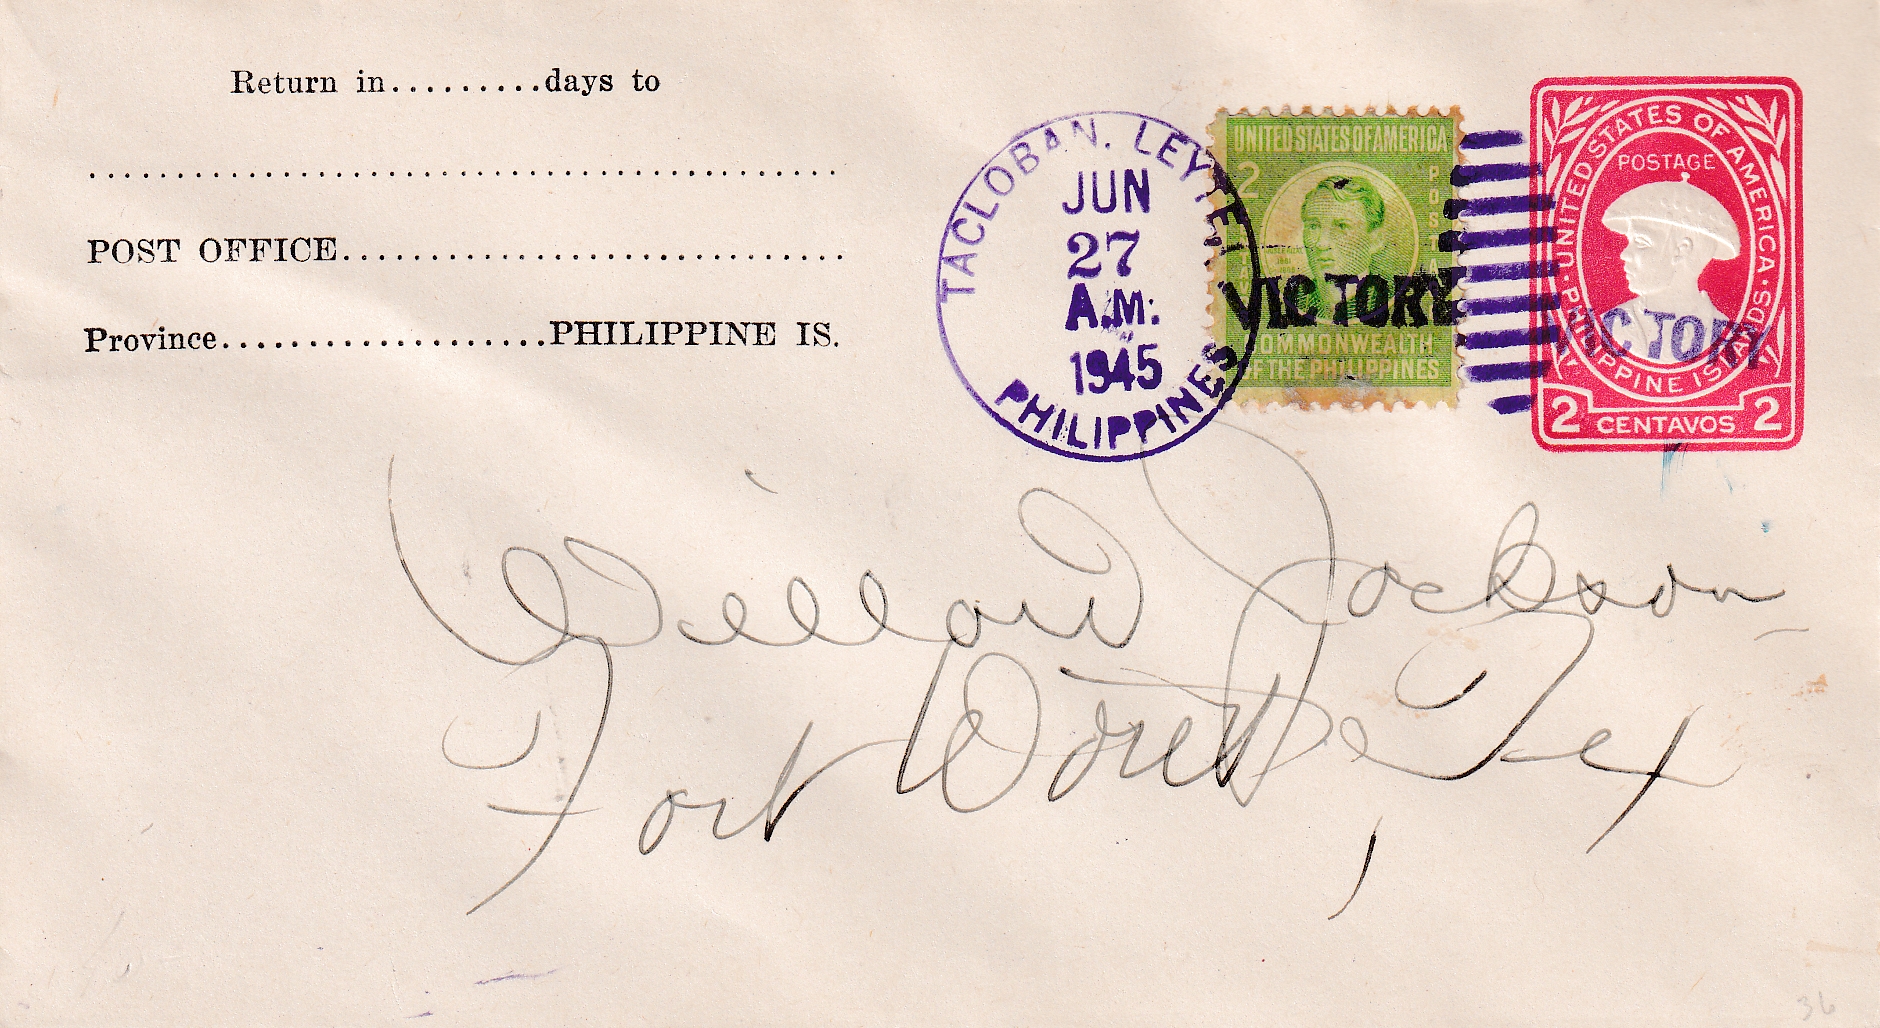 Return in.........days to
POST OFFICE..............................
Province...................PHILIPPINE IS.
TACLOBAN, LEYTE,
JUN
27
A.M.
1945
PHILIPPINES
UNITED STATES OF AMERICA
2
VICTORY
COMMONWEALTH
OF THE PHILIPPINES
UNITED STATES OF AMERICA
POSTAGE
VICTORY
PHILIPPINE ISLANDS
2 CENTAVOS 2
Willard Jackson
Fort Worth, Tex
36